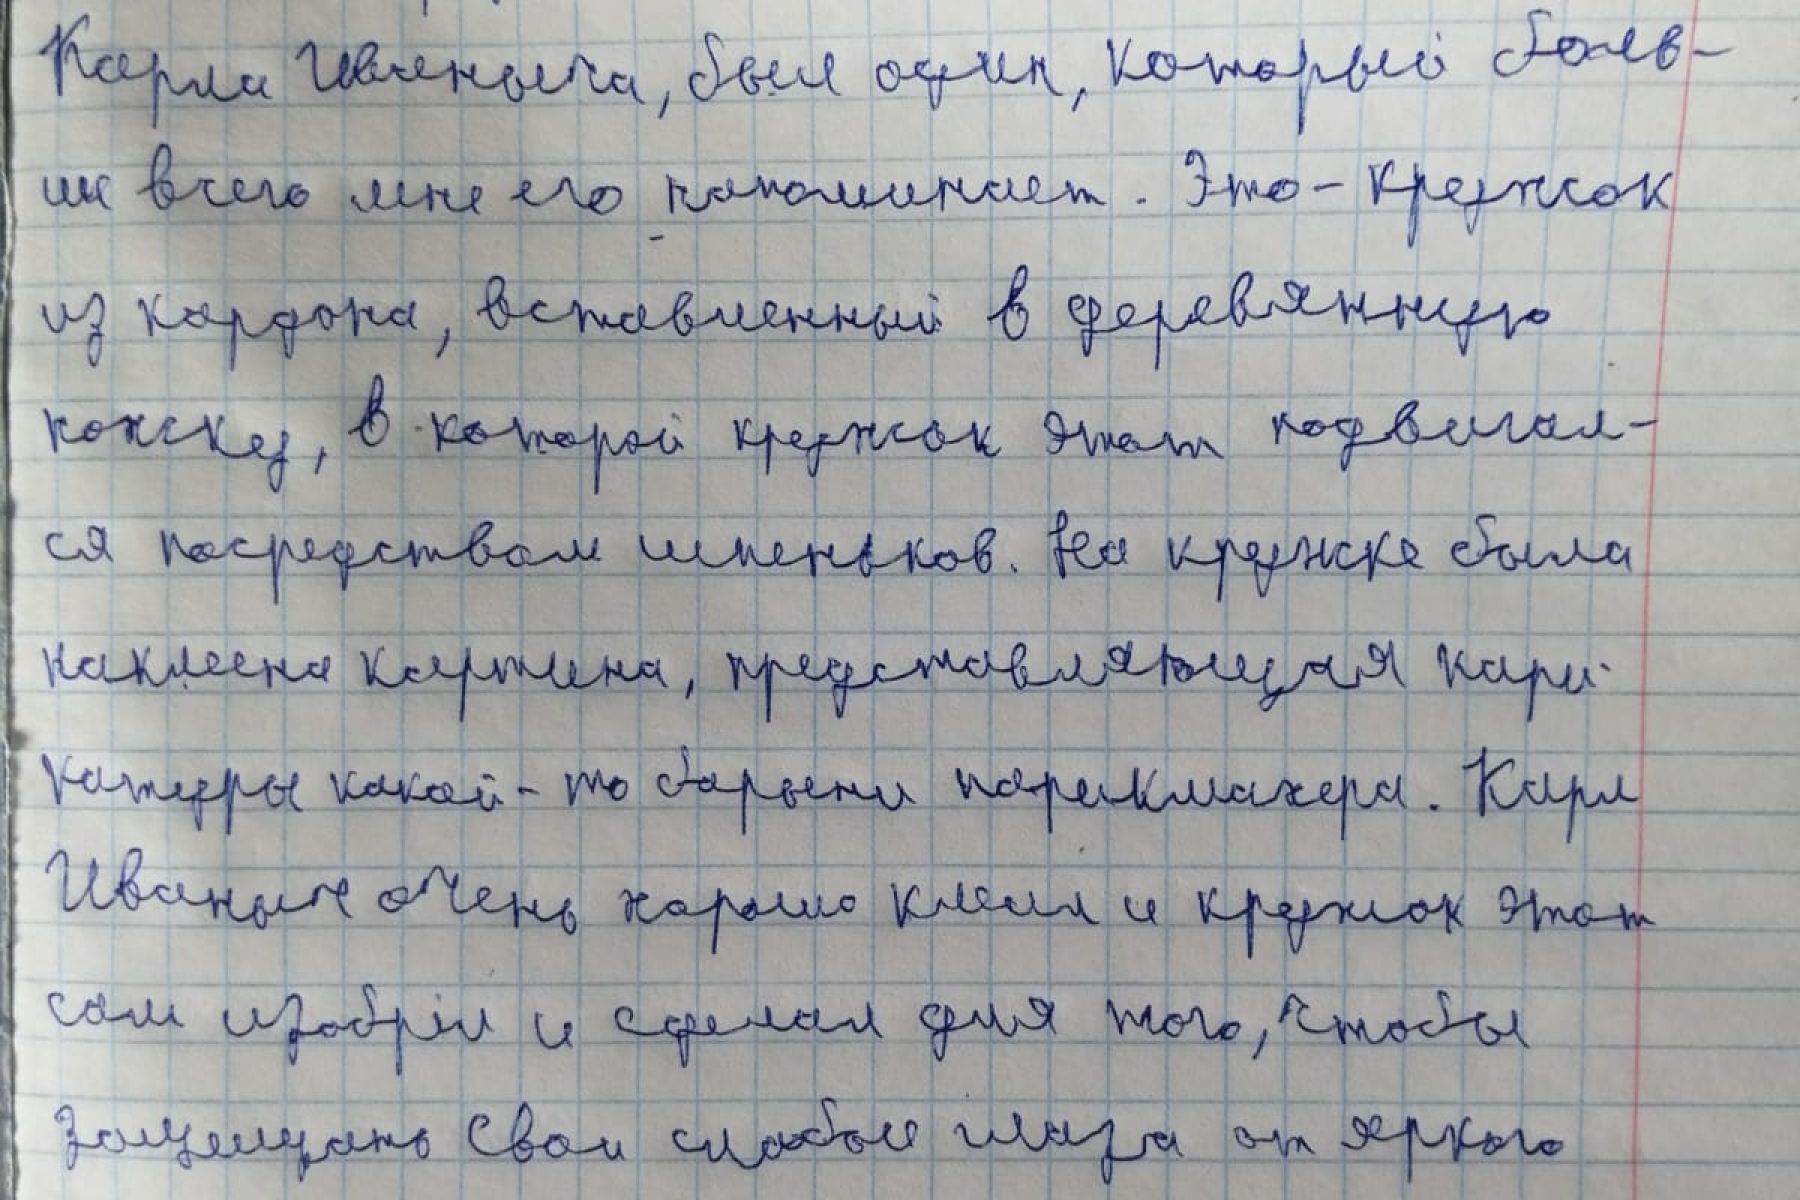 Карла Иваныча, был один, который боль-
ше всего мне его напоминает. Это - кружок
из кардона, вставленный в деревянную
ножку, в которой кружок этот подвигал-
ся посредством шпеньков. На кружке была
наклеена картина, представляющая кари-
катуры какой-то барыни парикмахера. Карл
Иваныч очень хорошо клеил и кружок этот
сам изобрёл и сделал для того, чтобы
защищать свои слабые глаза от яркого